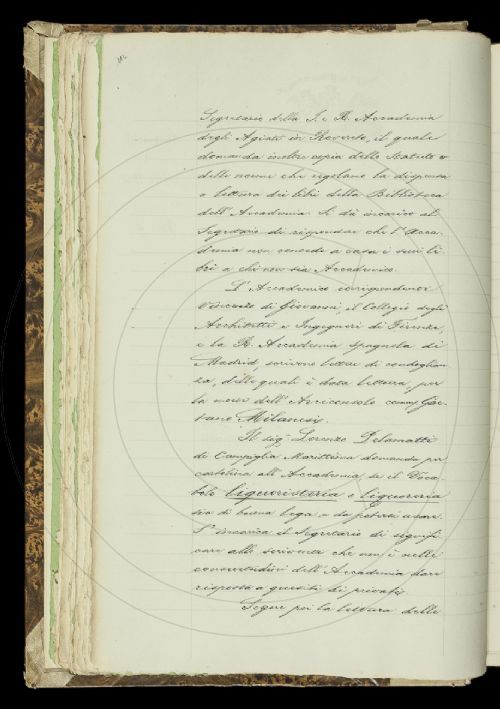 Segretario della I. e R. Accademia
degli Agiati in Rovereto, il quale
domanda inoltre copia dello Statuto e
delle norme che regolano la dispensa
e lettura dei libri della Biblioteca
dell'Accademia. Si dà incarico al
Segretario di rispondere che l'Acca-
demia non concede a casa i suoi li-
bri a chi non sia Accademico.
L'Accademico corrispondente
Vincenzo di Giovanni, il Collegio degli
Architetti e Ingegneri di Firenze,
e la R. Accademia spagnola di
Madrid, scrivono lettere di condoglian-
za, delle quali è data lettura, per
la morte dell'Arciconsolo comm. Gae-
tano Milanesi.
Il sig. Lorenzo
di Campiglia Marittima domanda per
cartolina all'Accademia, se il Voca-
bolo liquoristeria e liquoreria
sia di buona lega e da potersi usare.
S'incarica il Segretario di signifi-
care allo scrivente che non è nelle
consuetudini dell'Accademia dare
risposta a quesiti di privati.
Segue poi la lettura delle